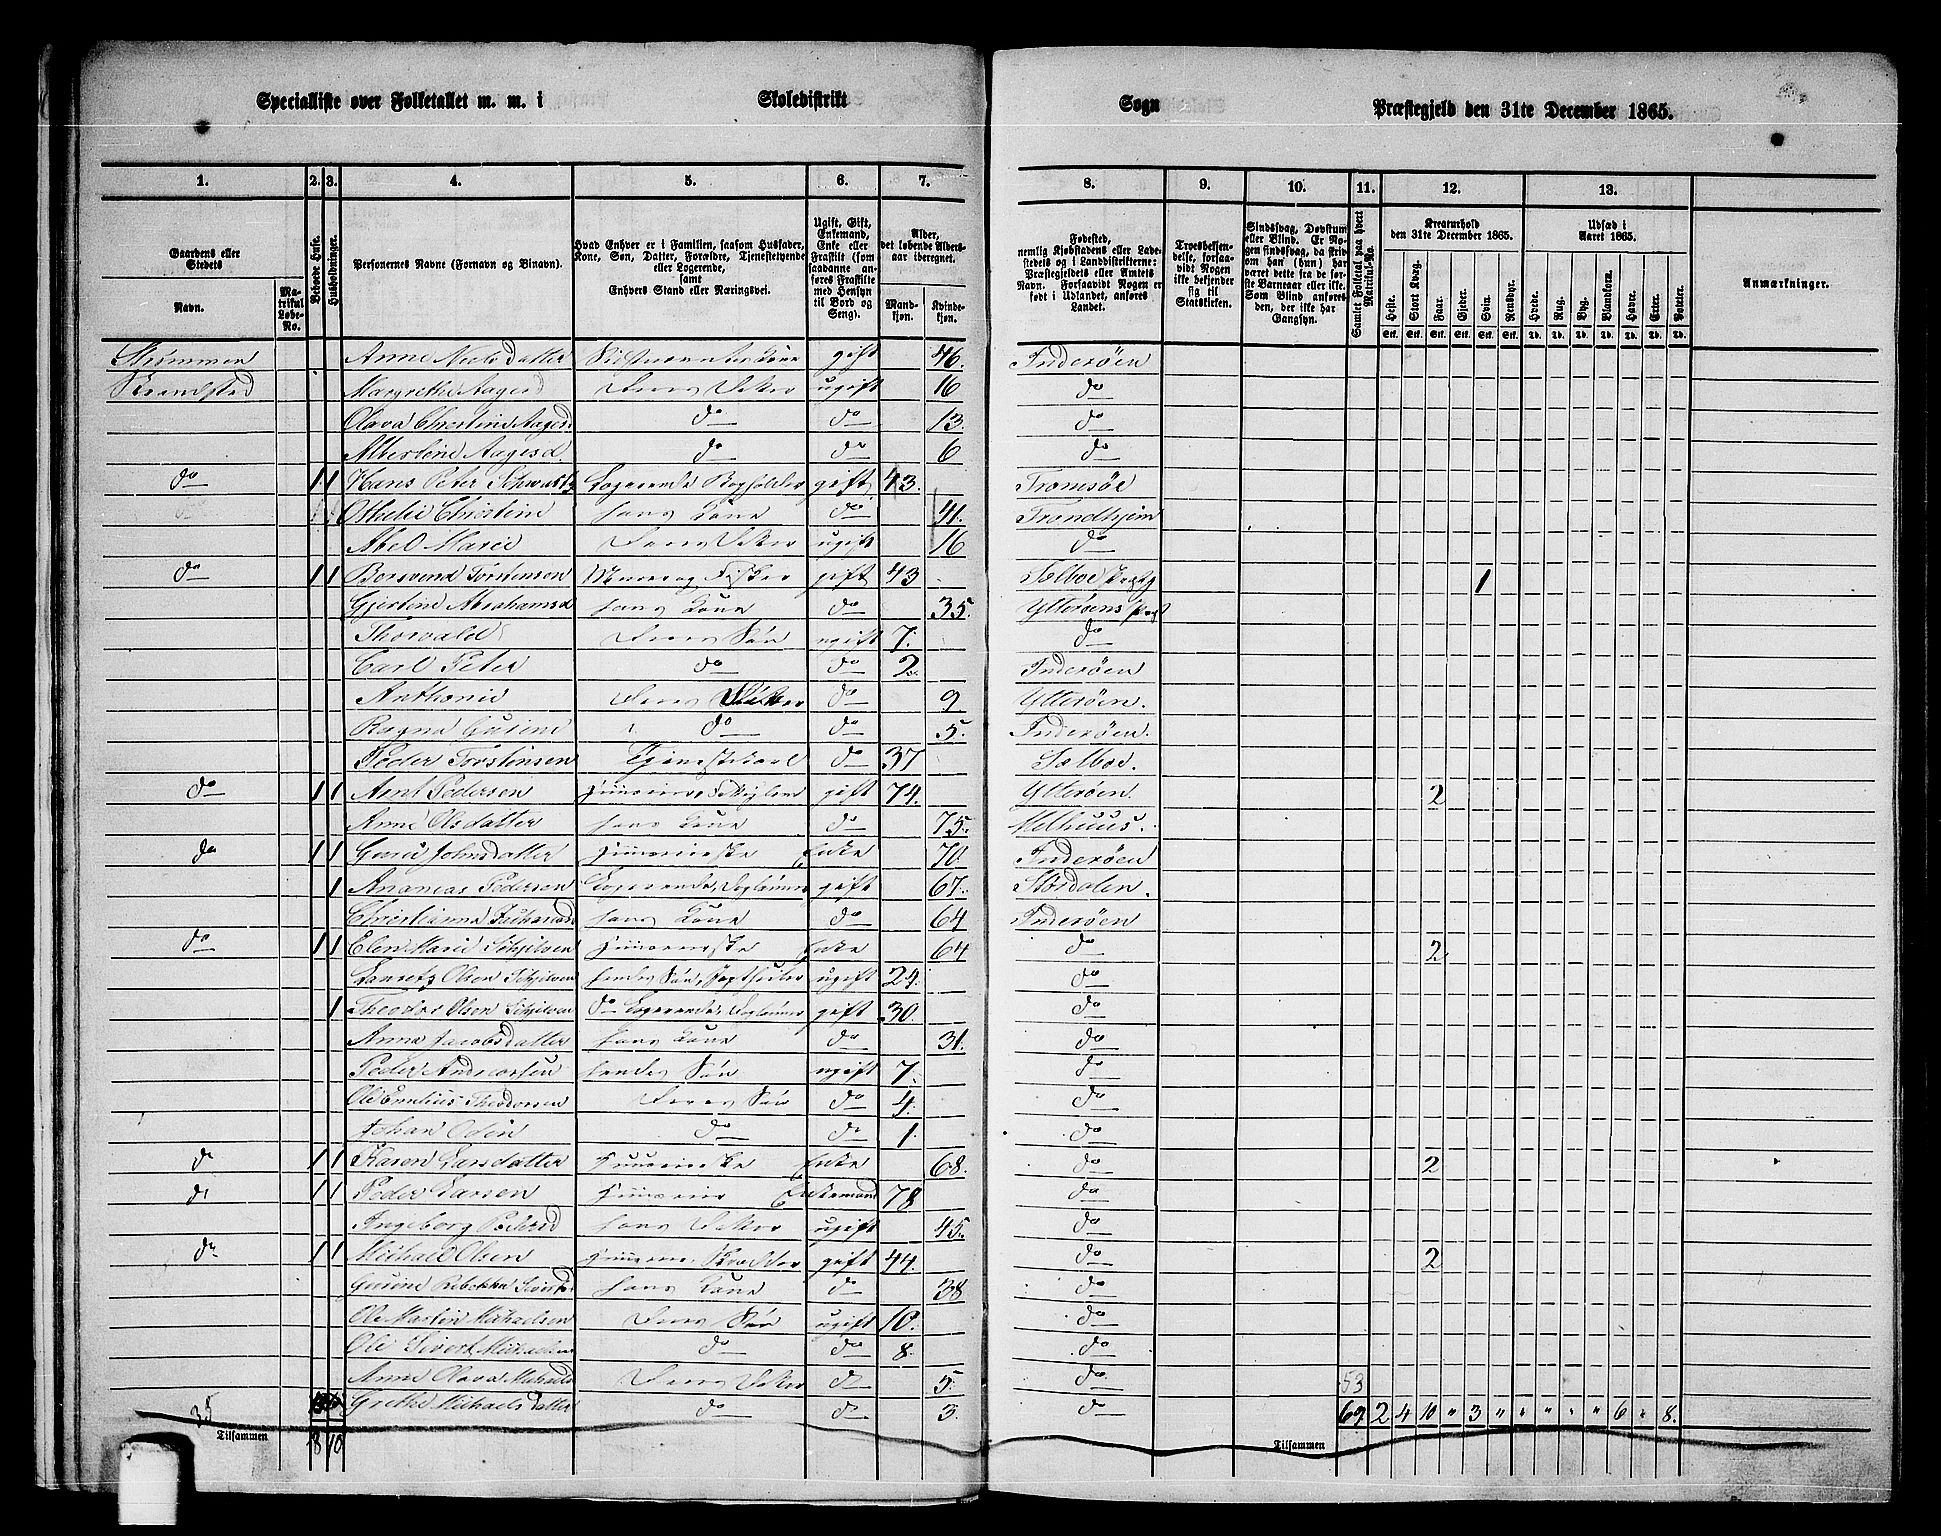 Specialliste over Folketallet m. m. i Skoledistrikt Sogn Præstegjeld den 31te December 1865.
1. 2. 3. 4. 5. 6. 7. 8. 9. 10. 11. 12. 13.
Gaardens eller Stedets
Navn.
Matrikul Løbe-No.
Beboede Huse.
Husholdninger.
Personernes Navne (Fornavn og Binavn).
Hvad Enhver er i Familien, saasom Husfader, Kone, Søn, Datter, Forældre, Tjenestetyende eller Logerende, samt Enhvers Stand eller Næringsvei.
Ugift, Gift, Enkemand, Enke eller Fraskilt (som saadanne anføres Fraskilte med Hensyn til Bord og Seng).
Alder, det løbende Alders-aar iberegnet.
Mandkjøn.
Kvindekjøn.
Fødested, nemlig Kjøbstadens eller Ladestedets og i Landdistrikterne: Præstegjeldets eller Amtets Navn. Forsaavidt Nogen er født i Udlandet, anføres Landet.
Troesbekjendelse, forsaavidt Nogen ikke bekjender sig til Statskirken.
Sindssvag, Døvstum eller Blind. Er Nogen sindssvag, da skrives om han (hun) har været dette fra de første Barneaar eller ikke. Som Blind anføres den, der ikke har Gangsyn.
Samlet Folketal paa hvert Matrikul-No.
Kreaturhold den 31te December 1865.
Heste. Stort Kvæg. Faar. Gjeder. Svin. Rensdyr.
Udsæd i Aaret 1865.
Hvede. Rug. Byg. Blandkorn. Havre. Erter. Poteter.
Anmærkninger.
Strømmen Anne Neelsdatter gift 46. Inderøen
Margrethe Aagesd ugift 16 do
Olava Christine Aagesd do do 13. do
Albertine Aagesd. do do 6 do
do 1 1 Hans Peter Schwartz Logerende gift 43. Tromsøe
Othelie Christine hans Kone do 41. Trondhjem
Abel Marie ugift 16 do
do 1 1 Borsvend Torstensen gift 43 Sælboe 1
Gjertine Abrahamsd hans Kone do 35. Ytterøens
Thorvald Deres Søn ugift 7. do
Carl Peter do do 2. Inderøen
Anthonie do 9 Ytterøen.
Ragna Gurine do do 5. Inderøen
Peder Torstensen do 37 Sælboe.
do 1 1 Arnt Pedersen gift 74. Ytterøen. 2
Anne Olsdatter hans Kone do 75. Melhuus.
do 1 1 Johnsdatter Enke 70 Inderøen
1 Ananias Pedersen Logerende gift 67. Størdalen.
Christianna hans Kone do 64 Inderøen
do 1 1 Elen Marie Schjelven Enke 64 do 2
Lauretz Olsen Schjelven ugift 24. do
1 Theodor Olsen Schjelven do Logerende gift 30. do
Anna Jacobsdatter hans Kone do 31. do
Peder Andreassen hendes Søn ugift 7. do
Ole Emilius Theodorsen Deres Søn do 4. do
Johan Odin do do 1. do
do 1 1 Karen Larsdatter Enke 68. do 2
do 1 1 Peder Larsen Enkemand 78 do
Ingeborg Pedersd ugift 45. do
do 1 1 Michael Olsen gift 44. do 2
Gurine Rebekka hans Kone do 38 do
Ole Martin Michaelsen Deres Søn ugift 10. do
Ole Sivert Michaelsen do do 8. do
Anne Olava Michaelsd do 5. do 53
35 Grethe Michaelsdatter do do 3. do 69 2 4 10 " 3 " " " " " 6 " 8.
Tilsammen 8 10 Tilsammen